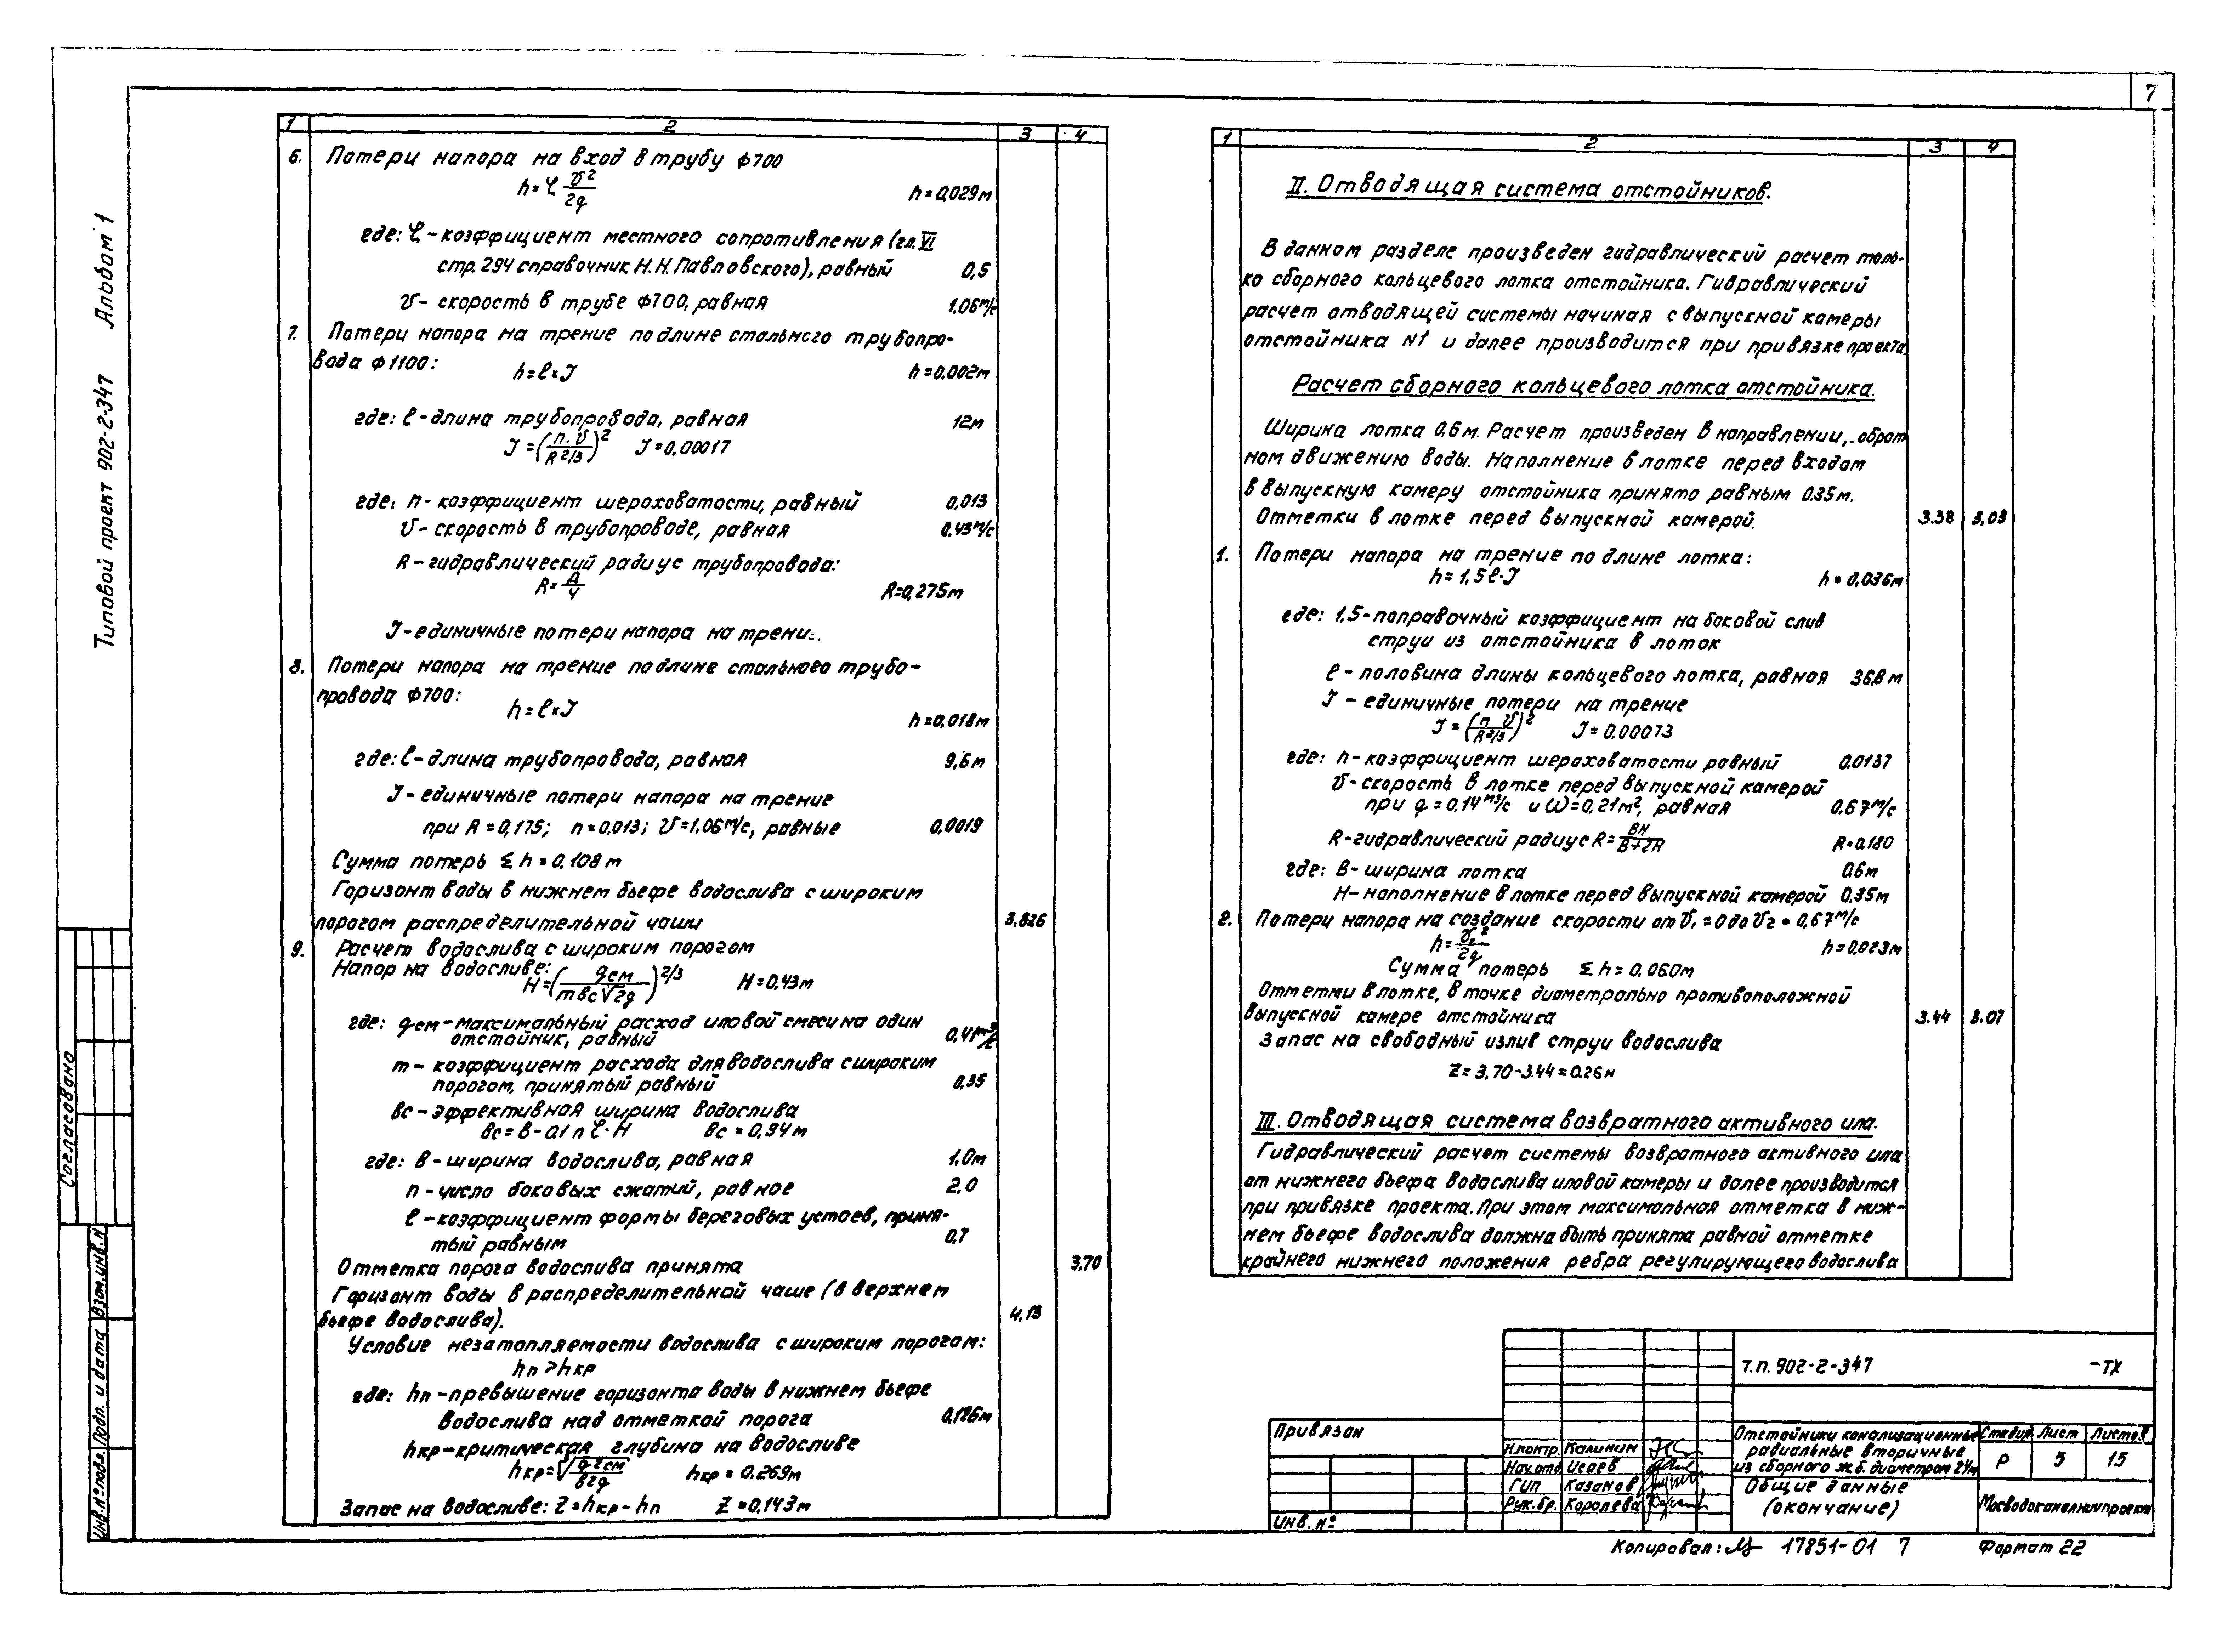 7
Альбом 1
Типовой проект 902-2-347
Согласовано
Взам.инв.N
Подп. и дата
Инв.N° подл.
1 2 3 4
6. Потери напора на вход в трубу ф700
h=ζ v²/2g h=0,029м
где: ζ-коэффициент местного сопротивления (гл.VI
стр. 294 справочник Н.Н.Павловского), равный 0,5
v- скорость в трубе ф700, равная 1.06м/с
7. Потери напора на трение по длине стального трубопро-
вода ф1100: h=ℓ×J h=0,002м
где: ℓ-длина трубопровода, равная 12м
J=(n.v/R^2/3)² J=0,00017
где: n- коэффициент шероховатости, равный 0,013
v- скорость в трубопроводе, равная 0,43м/с
R-гидравлический радиус трубопровода:
R=Д/4 R=0,275м
J-единичные потери напора на трение.
8. Потери напора на трение по длине стального трубо-
провода ф700: h=ℓ×J h=0,018м
где: ℓ-длина трубопровода, равная 9,6м
J-единичные потери напора на трение
при R=0,175; n=0,013; v=1,06м/с, равные 0,0019
Сумма потерь Σh=0,108м
Горизонт воды в нижнем бьефе водослива с широким
порогом распределительной чаши 3,826
9. Расчет водослива с широким порогом
Напор на водосливе: H=(qсм/mвс√2g)^2/3 H=0,43м
где: qсм-максимальный расход иловой смеси на один
отстойник, равный 0,41м³/с
m- коэффициент расхода для водослива с широким
порогом, принятый равный 0,35
вс-эффективная ширина водослива
вс=в-0.1n ζ·H вс=0,94м
где: в-ширина водослива, равная 1,0м
n-число боковых сжатий, равное 2,0
ℓ-коэффициент формы береговых устоев, приня-
тый равным 0,7
Отметка порога водослива принята 3,70
Горизонт воды в распределительной чаше (в верхнем
бьефе водослива). 4,13
Условие незатопляемости водослива с широким порогом:
hп>hкр
где: hп-превышение горизонта воды в нижнем бьефе
водослива над отметкой порога 0,126м
hкр-критическая глубина на водосливе
hкр=√q²см/в²g hкр=0.269м
Запас на водосливе: Z=hкр-hп Z=0,143м
1 2 3 4
II. Отводящая система отстойников.
В данном разделе произведен гидравлический расчет толь-
ко сборного кольцевого лотка отстойника. Гидравлический
расчет отводящей системы начиная с выпускной камеры
отстойника N1 и далее производится при привязке проекта.
Расчет сборного кольцевого лотка отстойника.
Ширина лотка 0,6м. Расчет произведен в направлении, обрат
ном движению воды. Наполнение в лотке перед входом
в выпускную камеру отстойника принято равным 0.35м.
Отметки в лотке перед выпускной камерой. 3.38 3,03
1. Потери напора на трение по длине лотка:
h=1,5ℓ·J h=0.036м
где: 1.5-поправочный коэффициент на боковой слив
струи из отстойника в лоток
ℓ-половина длины кольцевого лотка, равная 36,8м
J-единичные потери на трение
J=(n v/R2/3)² J=0.00073
где: n-коэффициент шероховатости равный 0.0137
v-скорость в лотке перед выпускной камерой
при q=0,14м³/с и ω=0,21м², равная 0.67м/с
R-гидравлический радиус R=BH/B+2H R=0.180
где: B-ширина лотка 0.6м
H-наполнение в лотке перед выпускной камерой 0,35м
2. Потери напора на создание скорости от v₁=0 до v₂=0,67м/с
h=v₂²/2g h=0.023м
Сумма потерь Σh=0,060м
Отметки в лотке, в точке диаметрально противоположной
выпускной камере отстойника 3.44 3.07
Запас на свободный излив струи водослива
Z=3,70-3.44=0.26м
III. Отводящая система возвратного активного ила.
Гидравлический расчет системы возвратного активного ила
от нижнего бьефа водослива иловой камеры и далее производится
при привязке проекта. При этом максимальная отметка в ниж-
нем бьефе водослива должна быть принята равной отметке
крайнего нижнего положения ребра регулирующего водослива
Привязан
Инв.N°
Т.П. 902-2-347 -ТХ
Н.контр. Калинин
Нач.отд. Исаев
ГИП Казанов
Рук.бр. Королева
Отстойники канализационные
радиальные вторичные
из сборного ж.б. диаметром 24м
Стадия Лист Листов
Р 5 15
Общие данные
(окончание)
Мосводоканалниипроект
Копировал: 17851-01 7 Формат 22